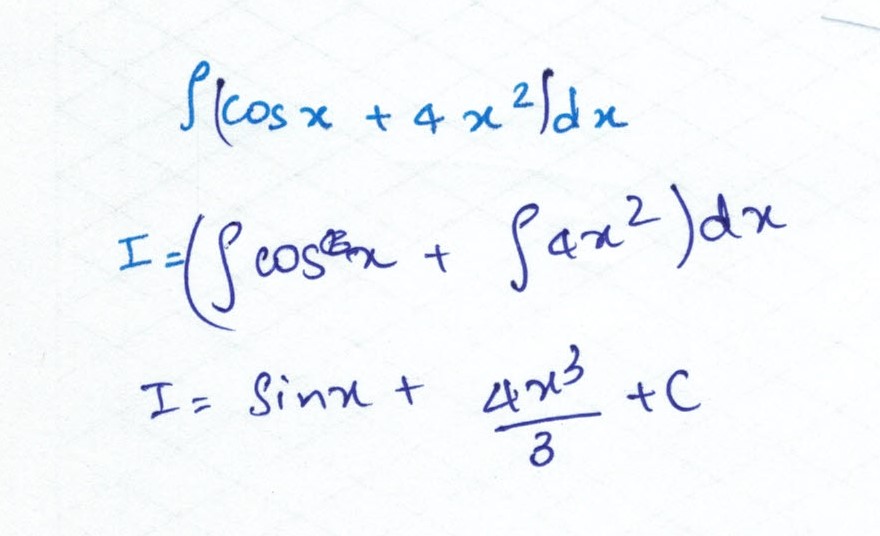 ∫(cosx + 4x²)dx
I=(∫cosx + ∫4x²)dx
I= Sinx + 4x³/3 +C